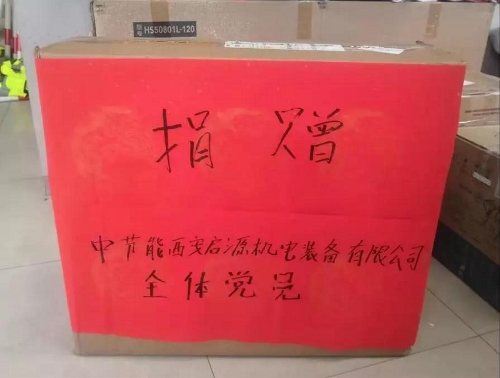 型号 HS50801L-120
捐赠
中节能西安启源机电装备有限公司
全体党员